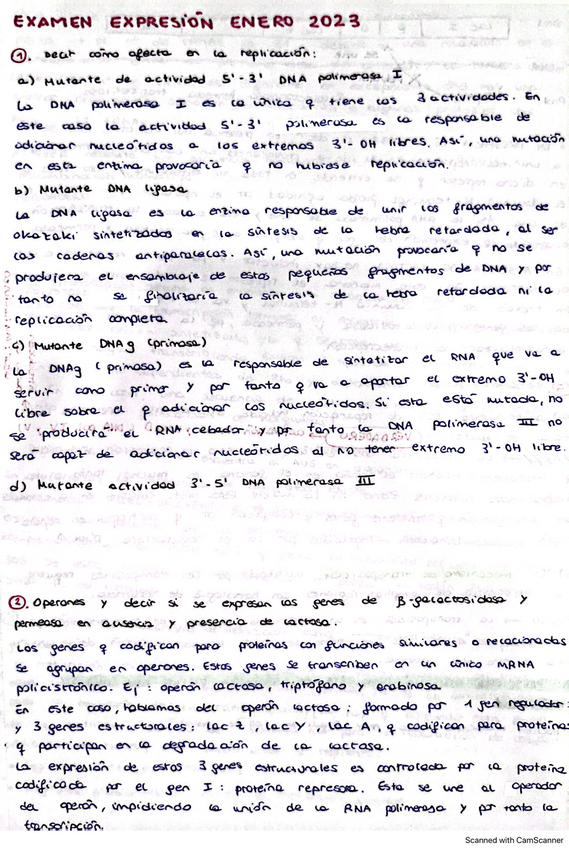 EXAMEN EXPRESIÓN ENERO 2023
①. Decir cómo afecta en la replicación:
a) Mutante de actividad 5'-3' DNA polimerasa I
La DNA polimerasa I es la única q tiene las 3 actividades. En
este caso la actividad 5'-3' polimerasa es la responsable de
adicionar nucleótidos a los extremos 3'-OH libres. Así, una mutación
en esta enzima provocaría q no hubiese replicación.
b) Mutante DNA ligasa
La DNA ligasa es la enzima responsable de unir los fragmentos de
okazaki sintetizados en la síntesis de la hebra retardada, al ser
las cadenas antiparalelas. Así, una mutación provocaría q no se
produjera el ensamblaje de estos pequeños fragmentos de DNA y por
tanto no se finalitaría la síntesis de la hebra retardada ni la
replicación completa
c) Mutante DNAg (primasa)
La DNAg (primasa) es la responsable de sintetizar el RNA que va a
servir como primer y por tanto q va a aportar el extremo 3'-OH
libre sobre el q adicionar los nucleótidos. Si esta está mutada, no
se producirá el RNA cebador y por tanto la DNA polimerasa III no
será capaz de adicionar nucleótidos al no tener extremo 3'-OH libre.
d) Mutante actividad 3'-5' DNA polimerasa III
②. Operones y decir si se expresan los genes de β-galactosidasa y
permeasa en ausencia y presencia de lactosa.
Los genes q codifican para proteínas con funciones similares o relacionadas
se agrupan en operones. Estos genes se transcriben en un único mRNA
policistrónico. Ej: operón lactosa, triptófano y arabinosa
En este caso, hablamos del operón lactosa: formado por 1 gen regulador:
y 3 genes estructurales: lac Z, lac Y, lac A, q codifican para proteínas
q participan en la degradación de la lactosa.
La expresión de estos 3 genes estructurales es controlada por la proteína
codificada por el gen I: proteína represora. Esta se une al operador
del operón, impidiendo la unión de la RNA polimerasa y por tanto la
transcripción
Scanned with CamScanner